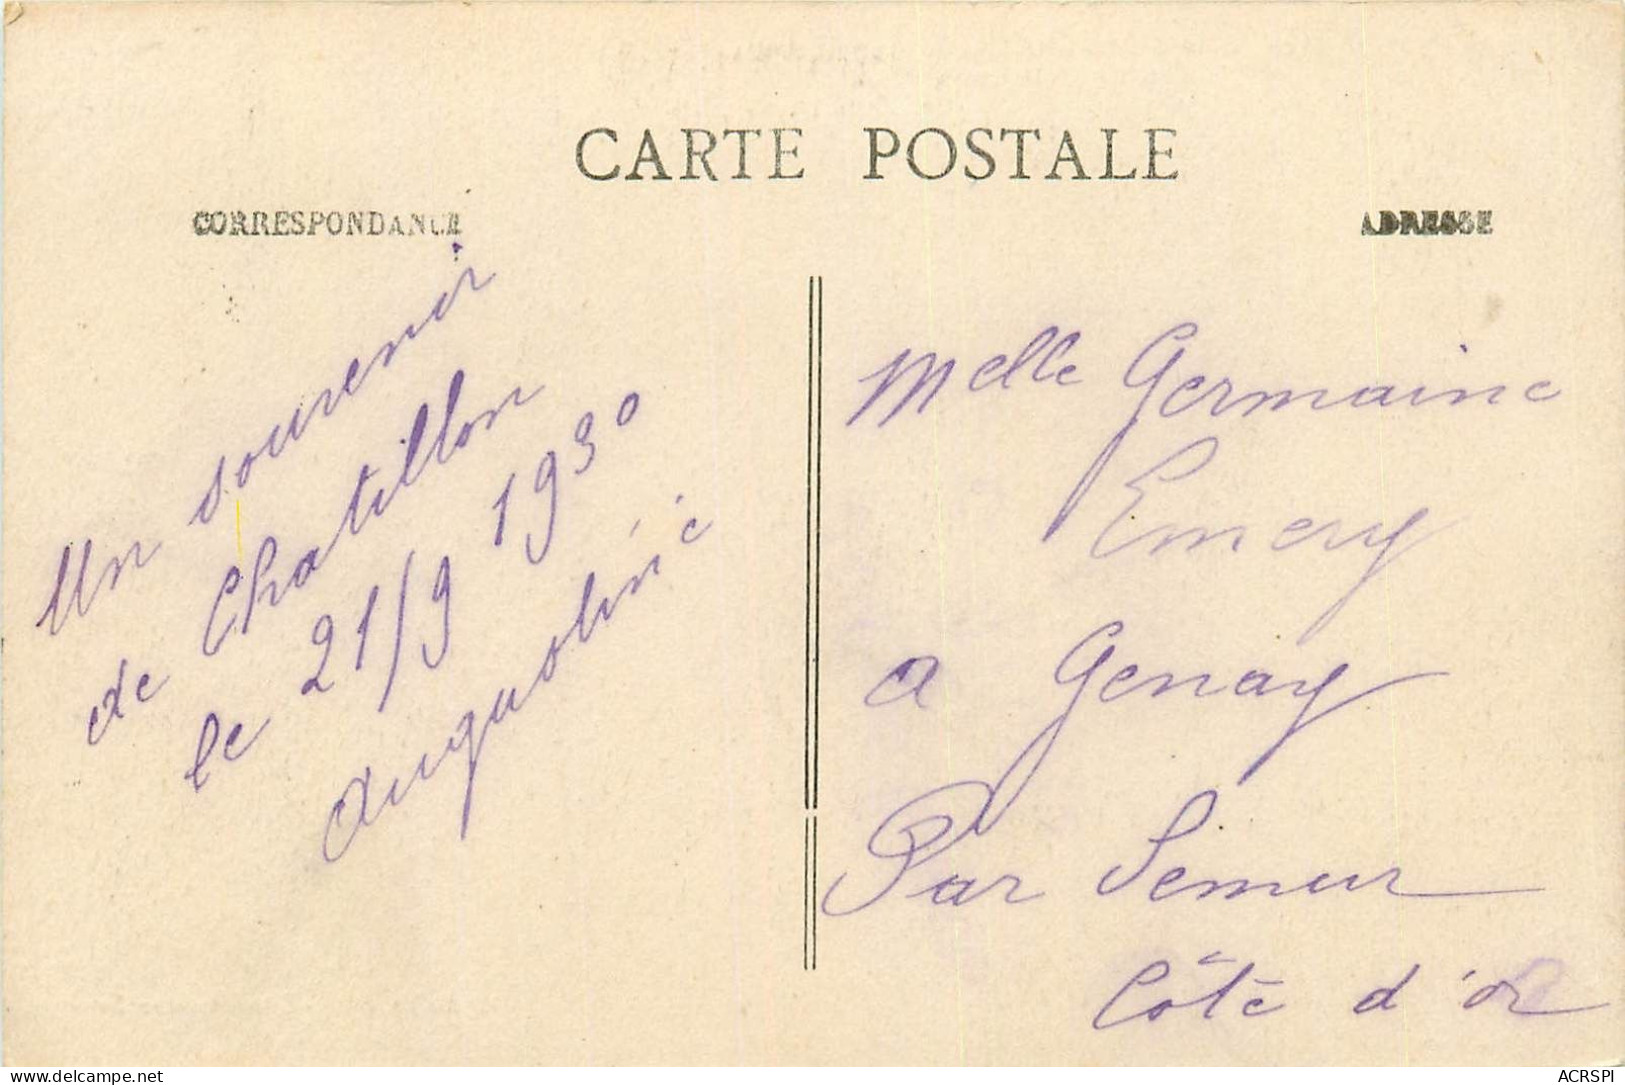 CARTE POSTALE
CORRESPONDANCE
ADRESSE
Un souvenir
de Chatillon
le 21/9 1930
Melle Germaine
Emery
a Genay
Par Semur
Côte d'or
ACRSPI